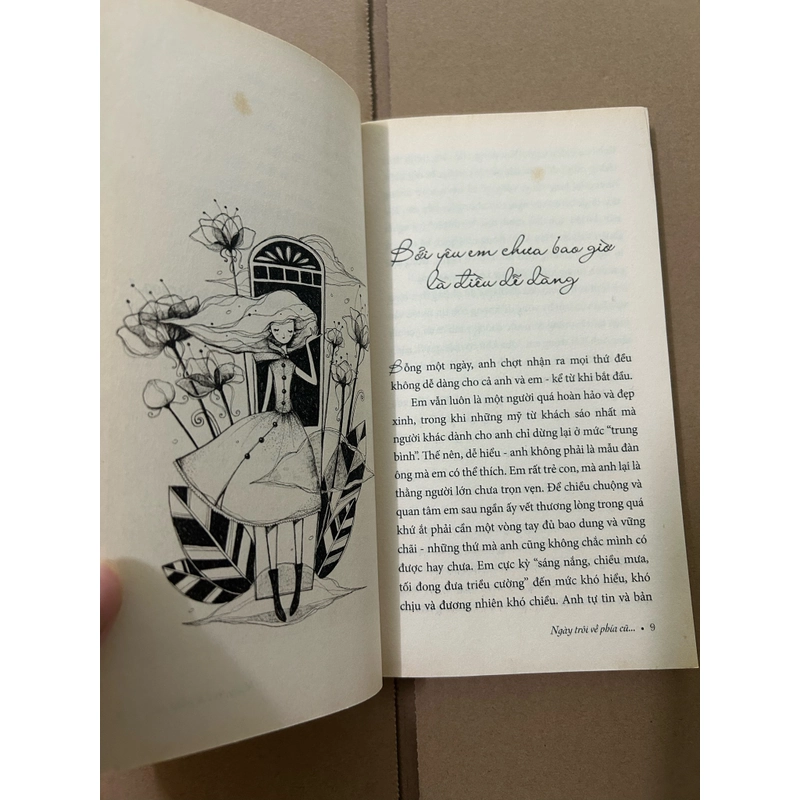 Bởi yêu em chưa bao giờ
là điều dễ dàng
Bỗng một ngày, anh chợt nhận ra mọi thứ đều
không dễ dàng cho cả anh và em - kể từ khi bắt đầu.
Em vẫn luôn là một người quá hoàn hảo và đẹp
xinh, trong khi những mỹ từ khách sáo nhất mà
người khác dành cho anh chỉ dừng lại ở mức "trung
bình". Thế nên, dễ hiểu - anh không phải là mẫu đàn
ông mà em có thể thích. Em rất trẻ con, mà anh lại là
thằng người lớn chưa trọn vẹn. Để chiều chuộng và
quan tâm em sau ngần ấy vết thương lòng trong quá
khứ ắt phải cần một vòng tay đủ bao dung và vững
chãi - những thứ mà anh cũng không chắc mình có
được hay chưa. Em cực kỳ "sáng nắng, chiều mưa,
tối đong đưa triều cường" đến mức khó hiểu, khó
chịu và đương nhiên khó chiều. Anh tự tin và bản
Ngày trôi về phía cũ... • 9